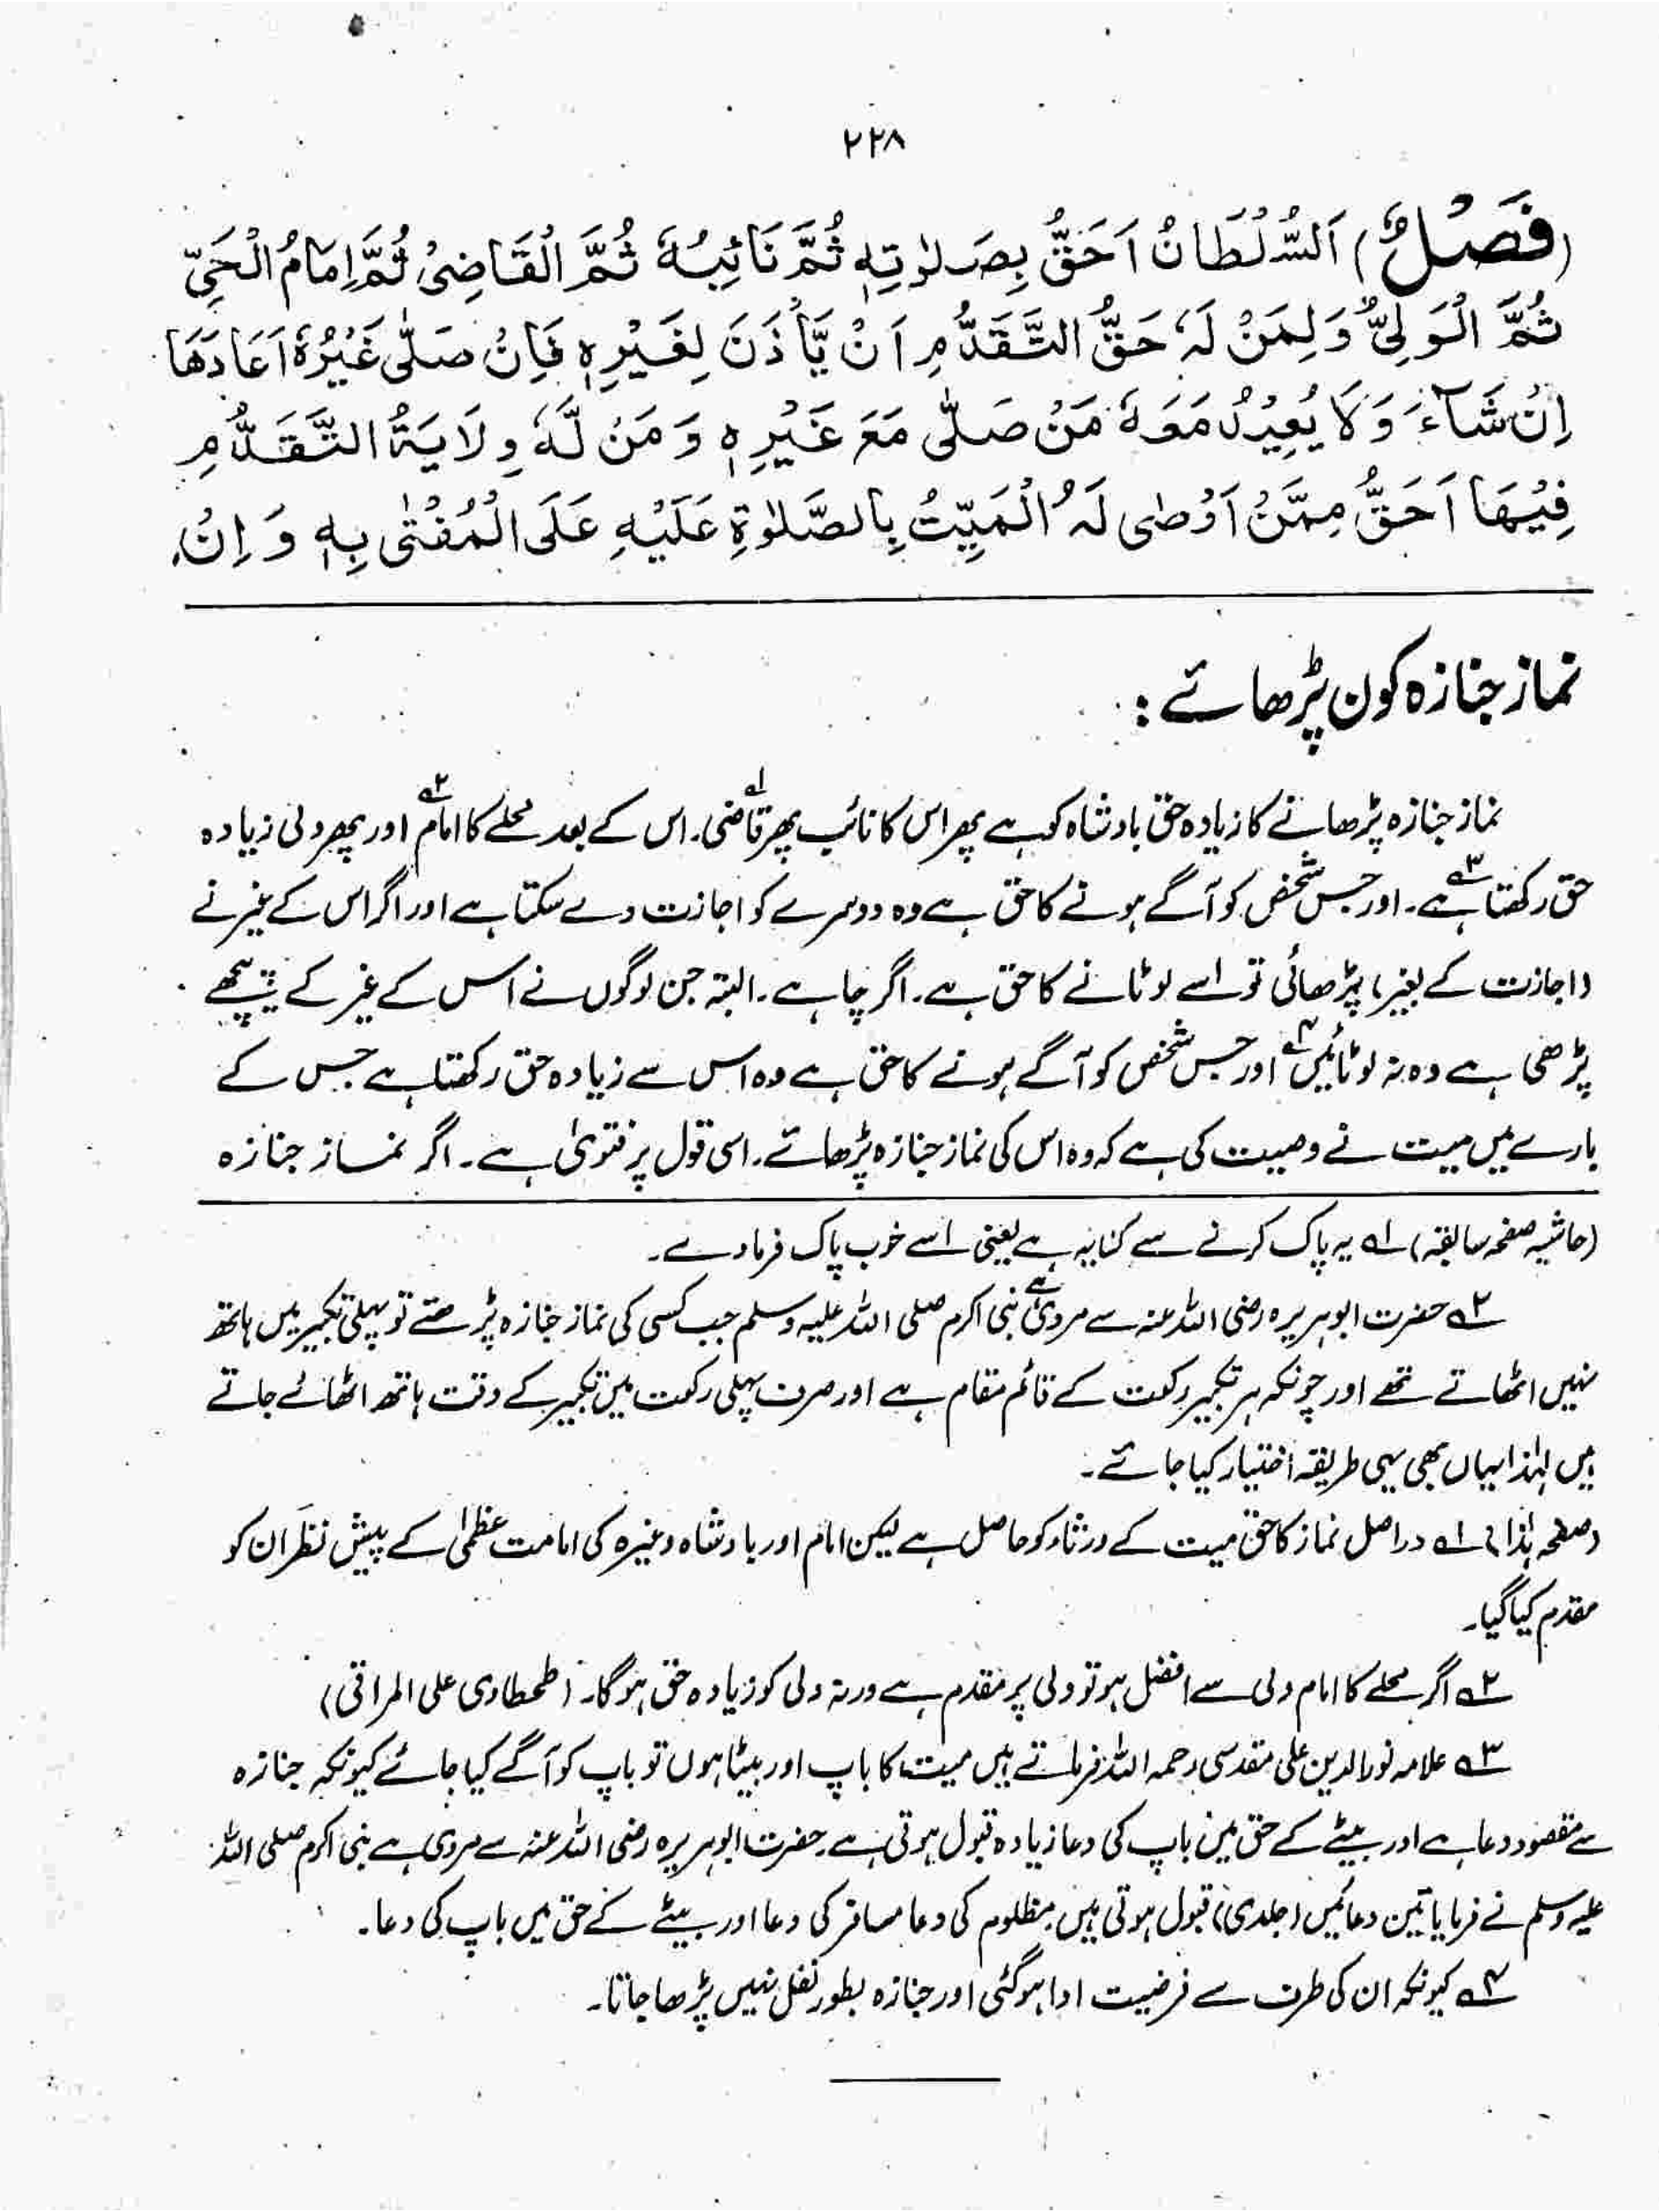 ۲۲۸
(فَصْلٌ) اَلسُّلْطَانُ اَحَقُّ بِصَلٰوتِهٖ ثُمَّ نَائِبُهٗ ثُمَّ الْقَاضِیْ ثُمَّ اِمَامُ الْحَیِّ
ثُمَّ الْوَلِیُّ وَلِمَنْ لَهٗ حَقُّ التَّقَدُّمِ اَنْ یَّأْذَنَ لِغَیْرِهٖ فَاِنْ صَلّٰی غَیْرُهٗ اَعَادَهَا
اِنْ شَآءَ وَلَا یُعِیْدُ مَعَهٗ مَنْ صَلّٰی مَعَ غَیْرِهٖ وَ مَنْ لَّهٗ وِلَایَةُ التَّقَدُّمِ
فِیْهَا اَحَقُّ مِمَّنْ اَوْصٰی لَهُ الْمَیِّتُ بِالصَّلٰوةِ عَلَیْهِ عَلَی الْمُفْتٰی بِهٖ وَ اِنْ
نماز جنازہ کون پڑھائے :
نماز جنازہ پڑھانے کا زیادہ حق بادشاہ کو ہے پھر اس کا نائب پھر قاضی۱؎۔ اس کے بعد محلے کا امام۲؎ اور پھر ولی زیادہ
حق رکھتا ہے۳؎۔ اور جس شخص کو آگے ہونے کا حق ہے وہ دوسرے کو اجازت دے سکتا ہے اور اگر اس کے غیر نے
(اجازت کے بغیر) پڑھائی تو اسے لوٹانے کا حق ہے۔ اگر چاہے۔ البتہ جن لوگوں نے اس کے غیر کے پیچھے
پڑھی ہے وہ نہ لوٹائیں۴؎ اور جس شخص کو آگے ہونے کا حق ہے وہ اس سے زیادہ حق رکھتا ہے جس کے
بارے میں میت نے وصیت کی ہے کہ وہ اس کی نماز جنازہ پڑھائے۔ اسی قول پر فتویٰ ہے۔ اگر نماز جنازہ
(حاشیہ صفحہ سابقہ) ۱؎ یہ پاک کرنے سے کنایہ ہے یعنی اسے خوب پاک فرما دے۔
۲؎ حضرت ابوہریرہ رضی اللہ عنہ سے مروی ہے نبی اکرم صلی اللہ علیہ وسلم جب کسی کی نماز جنازہ پڑھتے تو پہلی تکبیر میں ہاتھ
نہیں اٹھاتے تھے اور چونکہ ہر تکبیر رکعت کے قائم مقام ہے اور صرف پہلی رکعت میں تکبیر کے وقت ہاتھ اٹھائے جاتے
ہیں لہٰذا یہاں بھی یہی طریقہ اختیار کیا جائے۔
(صفحہ ہذا) ۱؎ دراصل نماز کا حق میت کے ورثاء کو حاصل ہے لیکن امام اور بادشاہ وغیرہ کی امامت عظمیٰ کے پیش نظر ان کو
مقدم کیا گیا۔
۲؎ اگر محلے کا امام ولی سے افضل ہو تو ولی پر مقدم ہے ورنہ ولی کو زیادہ حق ہوگا۔ (طحطاوی علی المراقی)
۳؎ علامہ نورالدین علی مقدسی رحمہ اللہ فرماتے ہیں میت کا باپ اور بیٹا ہوں تو باپ کو آگے کیا جائے کیونکہ جنازہ
سے مقصود دعا ہے اور بیٹے کے حق میں باپ کی دعا زیادہ قبول ہوتی ہے۔ حضرت ابوہریرہ رضی اللہ عنہ سے مروی ہے نبی اکرم صلی اللہ
علیہ وسلم نے فرمایا تین دعائیں (جلدی) قبول ہوتی ہیں مظلوم کی دعا مسافر کی دعا اور بیٹے کے حق میں باپ کی دعا۔
۴؎ کیونکہ ان کی طرف سے فرضیت ادا ہوگئی اور جنازہ بطور نفل نہیں پڑھا جاتا۔